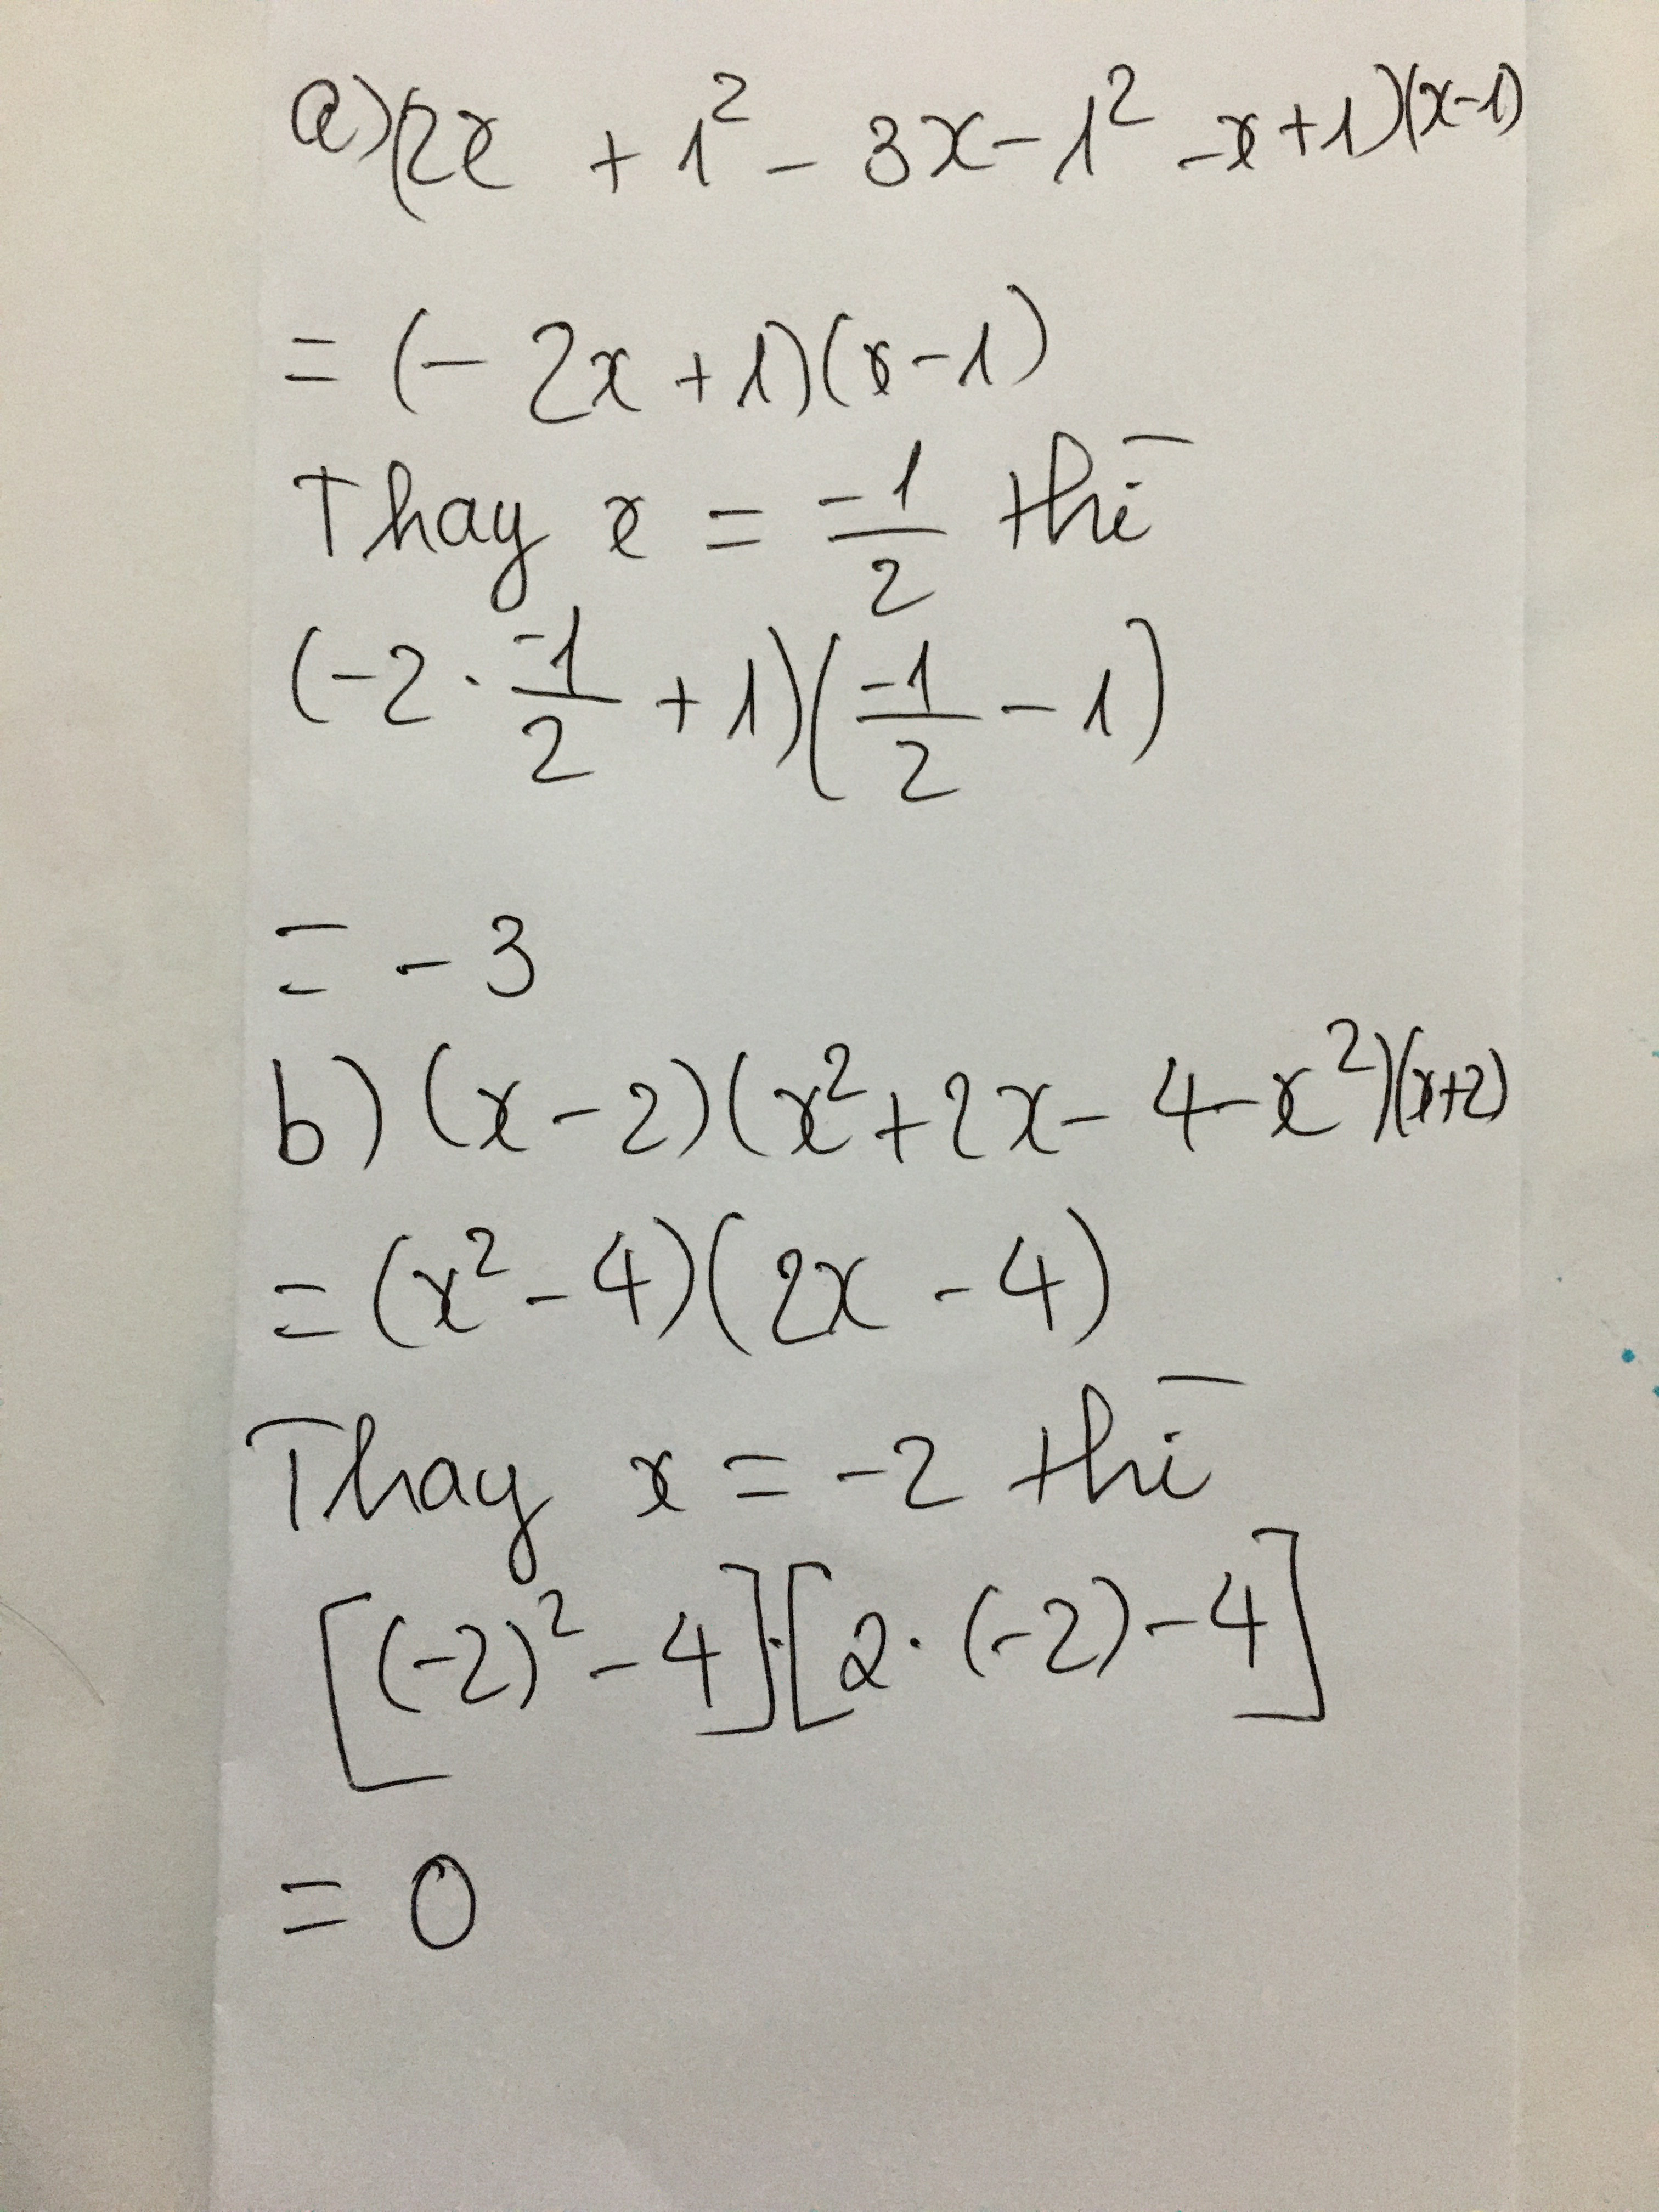 a) (2x + 1² - 3x - 1² - x + 1)(x-1)
= (- 2x + 1)(x - 1)
Thay x = -1/2 thi
(-2 · -1/2 + 1)(-1/2 - 1)
= - 3
b) (x - 2)(x² + 2x - 4 - x²)(x+2)
= (x² - 4)(2x - 4)
Thay x = -2 thi
[(-2)² - 4]·[2 · (-2) - 4]
= 0